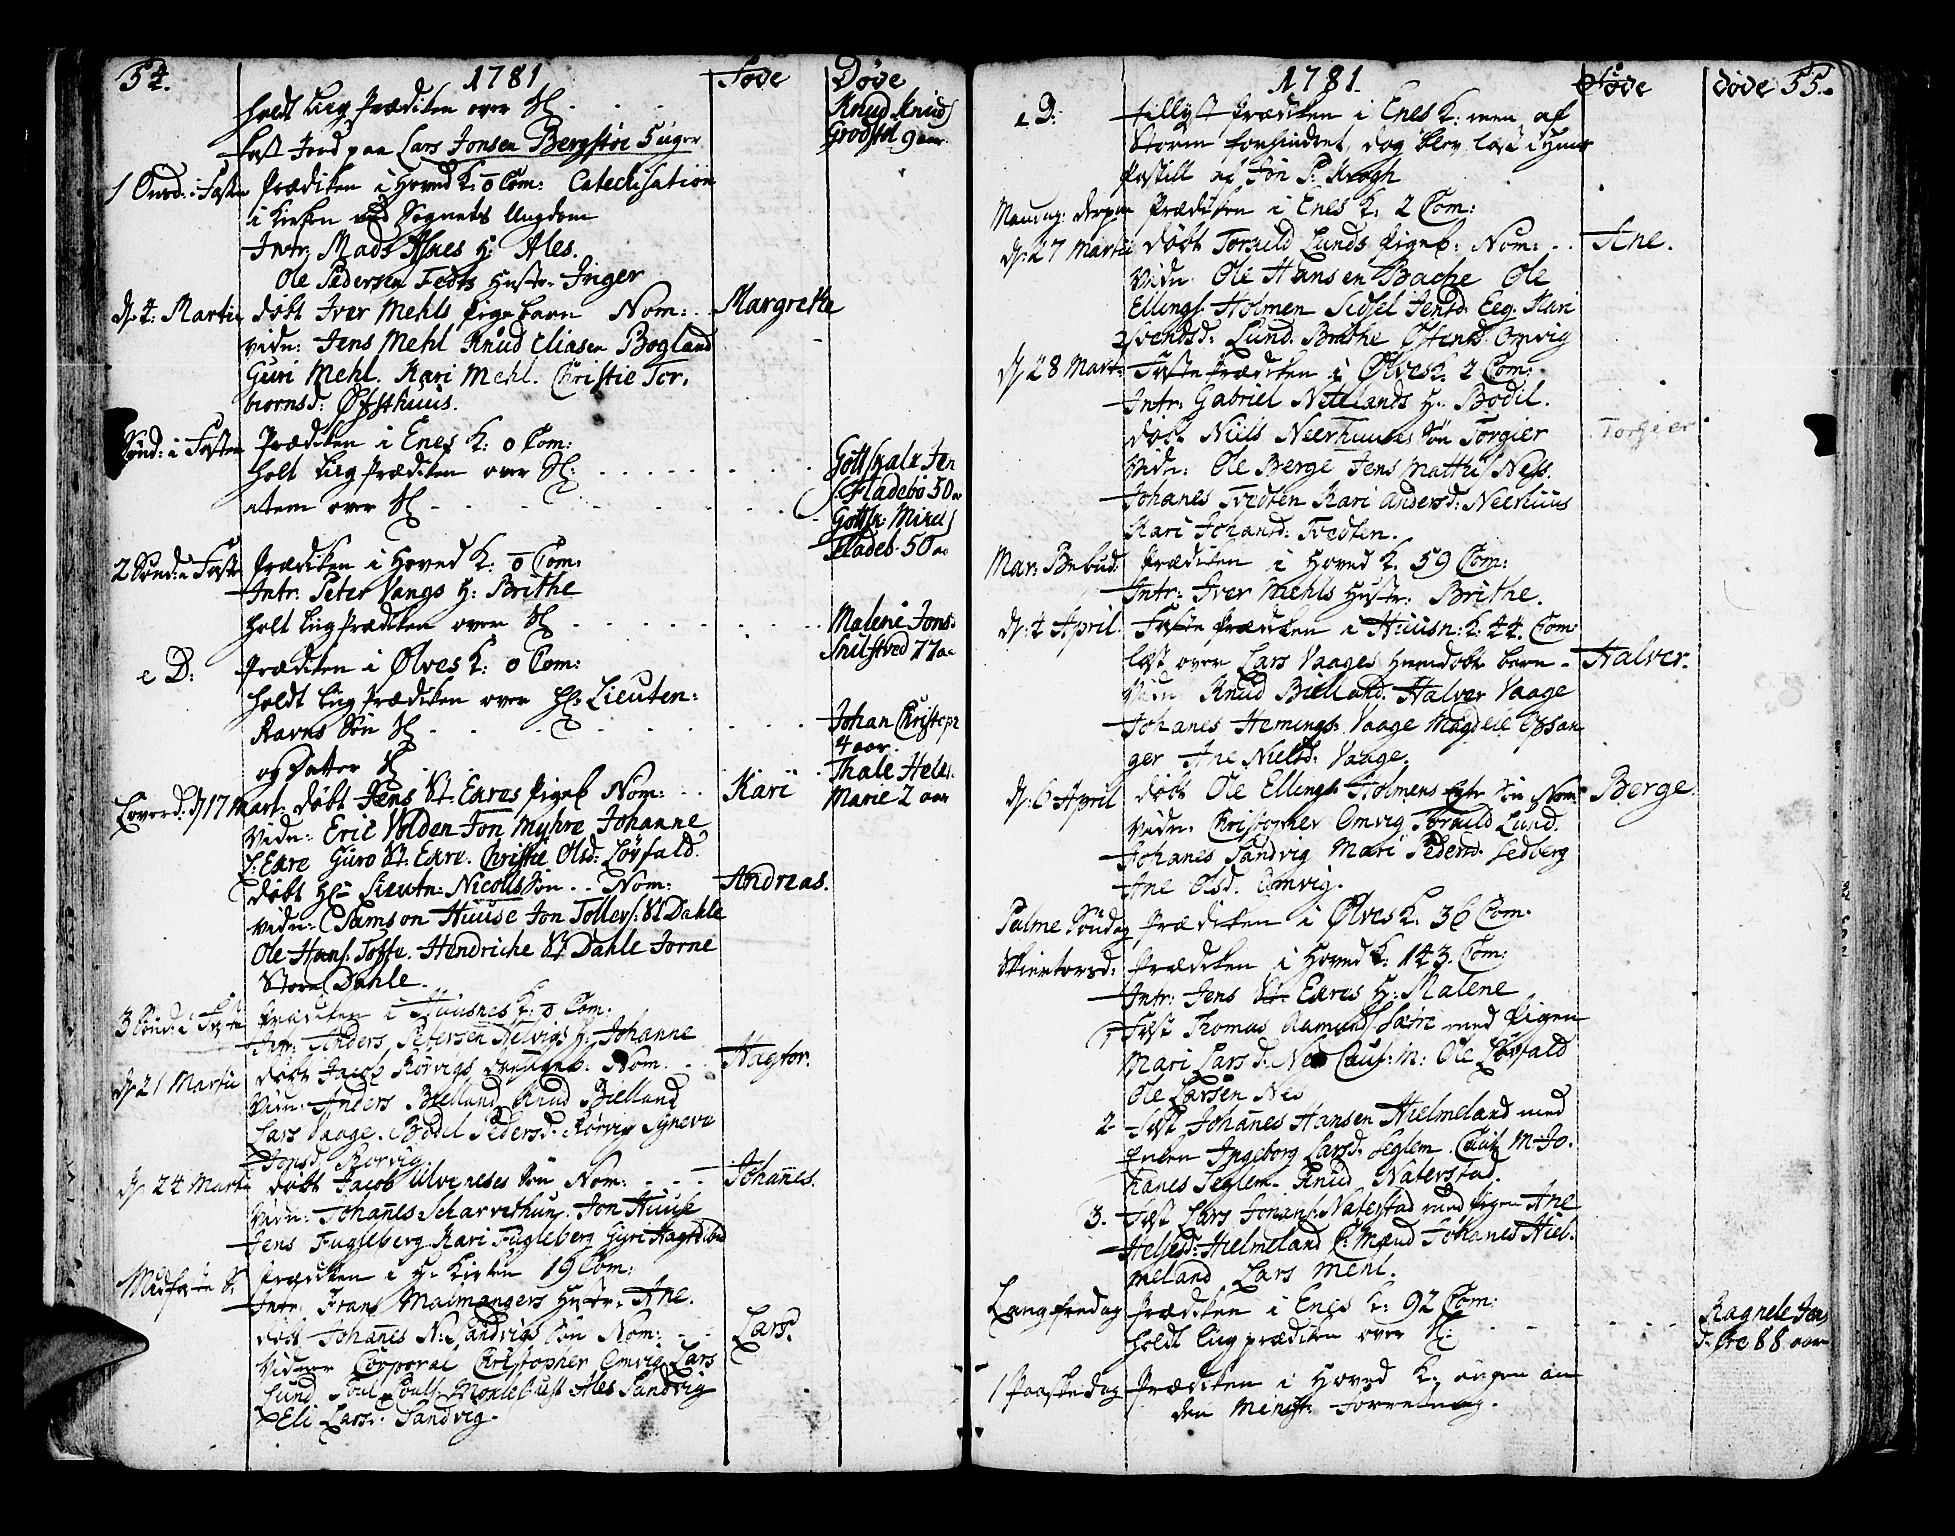 54. 1781 Føde Døde
holdt Liig Prædiken over Sl. Knud Knuds
kast Jord paa Lars Jonsen Bergstøe 5 uger Grodstøl 9 aar
1 Onsd: i Faste Prædiken i Hoved K: 0 Com: Catechisation
i Kirken med Sognets Ungdom
Intr: Mads Hues H: Ales.
Ole Pedersen Fedts Hustr: Inger
D. 4. Martii døbt Iver Mehls Pigebarn Nom: Margrethe
vidn: Jens Mehl Knud Eliasen Bogland
Guri Mehl. Kari Mehl. Christie Tor.
biornsd: Øfsthuus.
Sønd: i Fasten Prædiken i Enes K: 0 Com:
holt Liig Prædiken over Sl: Gottskalk Jen
item over Sl Fladebø 50 a
Gottsk: Mikel
Fladeb. 50 aa
2 Sønd: i Faste Prædiken i Hoved K: 0 Com:
Intr: Peter Vangs H: Brithe
holt Liig Prædiken over Sl Malene Jons.
Snilstved 77 a
e D: Prædiken i Ølves K: 0 Com:
holdt Liig Prædiken over Hr: Lieuten:
Ravns Søn Sl Johan Christoph
4 aar.
og Datter Sl Thale Hele
Marie 2 aar
Løverd. D 17 Mart. døbt Jens St: Eares Pigeb Nom: Kari
Vidn: Eric Volden Jon Myhre Johanne
L: Eare Guro St: Eare. Christie Olsd: Løvfald.
døbt Hr Lieutn: Nicolls Søn Nom: Andreas.
vidn: Samson Huuse Jon Tollevs: St Dahle
Ole Hans: Tofte. Hendriche St Dahle Jorne
Store Dahle.
3 Sønd: i Faste Prædiken i Huusnes K: 0 Com.
Intr. Anders Petersen Helvigs H: Johanne
D. 21 Martii døbt Jacob Rørvigs Nom. Hagtor.
Vidn: Anders Bielland Knud Bielland
Lars Vaage. Bodel Pedersd. Rørvig Syneva
Jonsd. Rørvig
D. 24 Martii døbt Jacob Ulveneses Søn Nom: Johannes.
Vidn: Johannes Scharvethun. Jon Huuse
Jens Fugleberg Kari Fugleberg Guri
Midfaste S. Prædiken i H: Kirken 19 Com:
Intr: Frans Malmangers Hustr: Ane.
døbt Johannes N: Sandvigs Søn Nom: Lars.
Vidner Corporal Christopher Omvig Lars
Lund Poul Pouls. Moxlebust Ales Sandvig
Eli Lars: Sandvig.

1781. Føde døde 55.
e D: tillyst Prædiken i Enes K: men af
Storm forhindret, dog blev læst i Huus
Postill af Jon P: Krogh
Mandag: derpaa Prædiken i Enes K: 2 Com:
D: 27 Martii døbt Torkild Lunds Pigeb: Nom: Ane.
Vidn: Ole Hansen Bache Ole
Ellings. Holmen Sidsel Jensd. Eeg. Kari
Svendsd: Lund. Brithe Omvig
D. 28 Mart: Faste Prædiken i Ølves K. 2 Com:
Intr: Gabriel Netelands H. Bodil.
døbt Niels Neerhuuses Søn Torgier Torgier
Vidn: Ole Berge Jens Matthis Nes.
Johanes Tvedten Kari Andersd: Neerhuus
Kari Johansd: Tvedten.
Mar: Bebud. Prædiken i Hoved K. 59 Com:
Intr: Iver Mehls Hustr: Brithe.
D. 4 April. Faste Prædiken i Huusn: K: 44. Com:
læst over Lars Vaages hiemdøbt barn Halver.
Vidn Knud Bielland. Halver Vaage
Johanes Hemings: Vaage Magdele Opsan
ger Ane Nielsd. Vaage.
D: 6 April døbt Ole Ellings: Holmens Søn Nom: Berge.
Vidn: Christopher Omvig Torkild Lund.
Johanes Sandvig Mari Pedersd. Sedberg
Ane Olsd. Omvig.
Palme Søndag Prædiken i Ølves K: 36 Com.
Skiertorsd: Prædiken i Hoved K: 143. Com:
Intr: Jens St. Eares H: Malene
1 Fæst Thomas Aamunds: Sætre med Pigen
Mari Larsd. Nes Caus: M: Ole Løvfald
Ole Larsen Nes
2 Fæst Johanes Hansen Hielmeland med
Enken Ingeborg Larsd. Teglem. Caus M Jo.
hanes Teglem. Knud Naterstad.
3. Fæst Lars Johans: Naterstad med Pigen Ane
Helgesd: Hielmeland C: Mænd Johanes Hiel.
meland Lars Mehl.
Langfredag Prædiken i Enes K: 92 Com:
holdt Liigprædiken over Sl: Ragnele Jen
88 aar
1 Paaskedag Prædiken i Hoved K. ingen an
den Minist: Forretning.